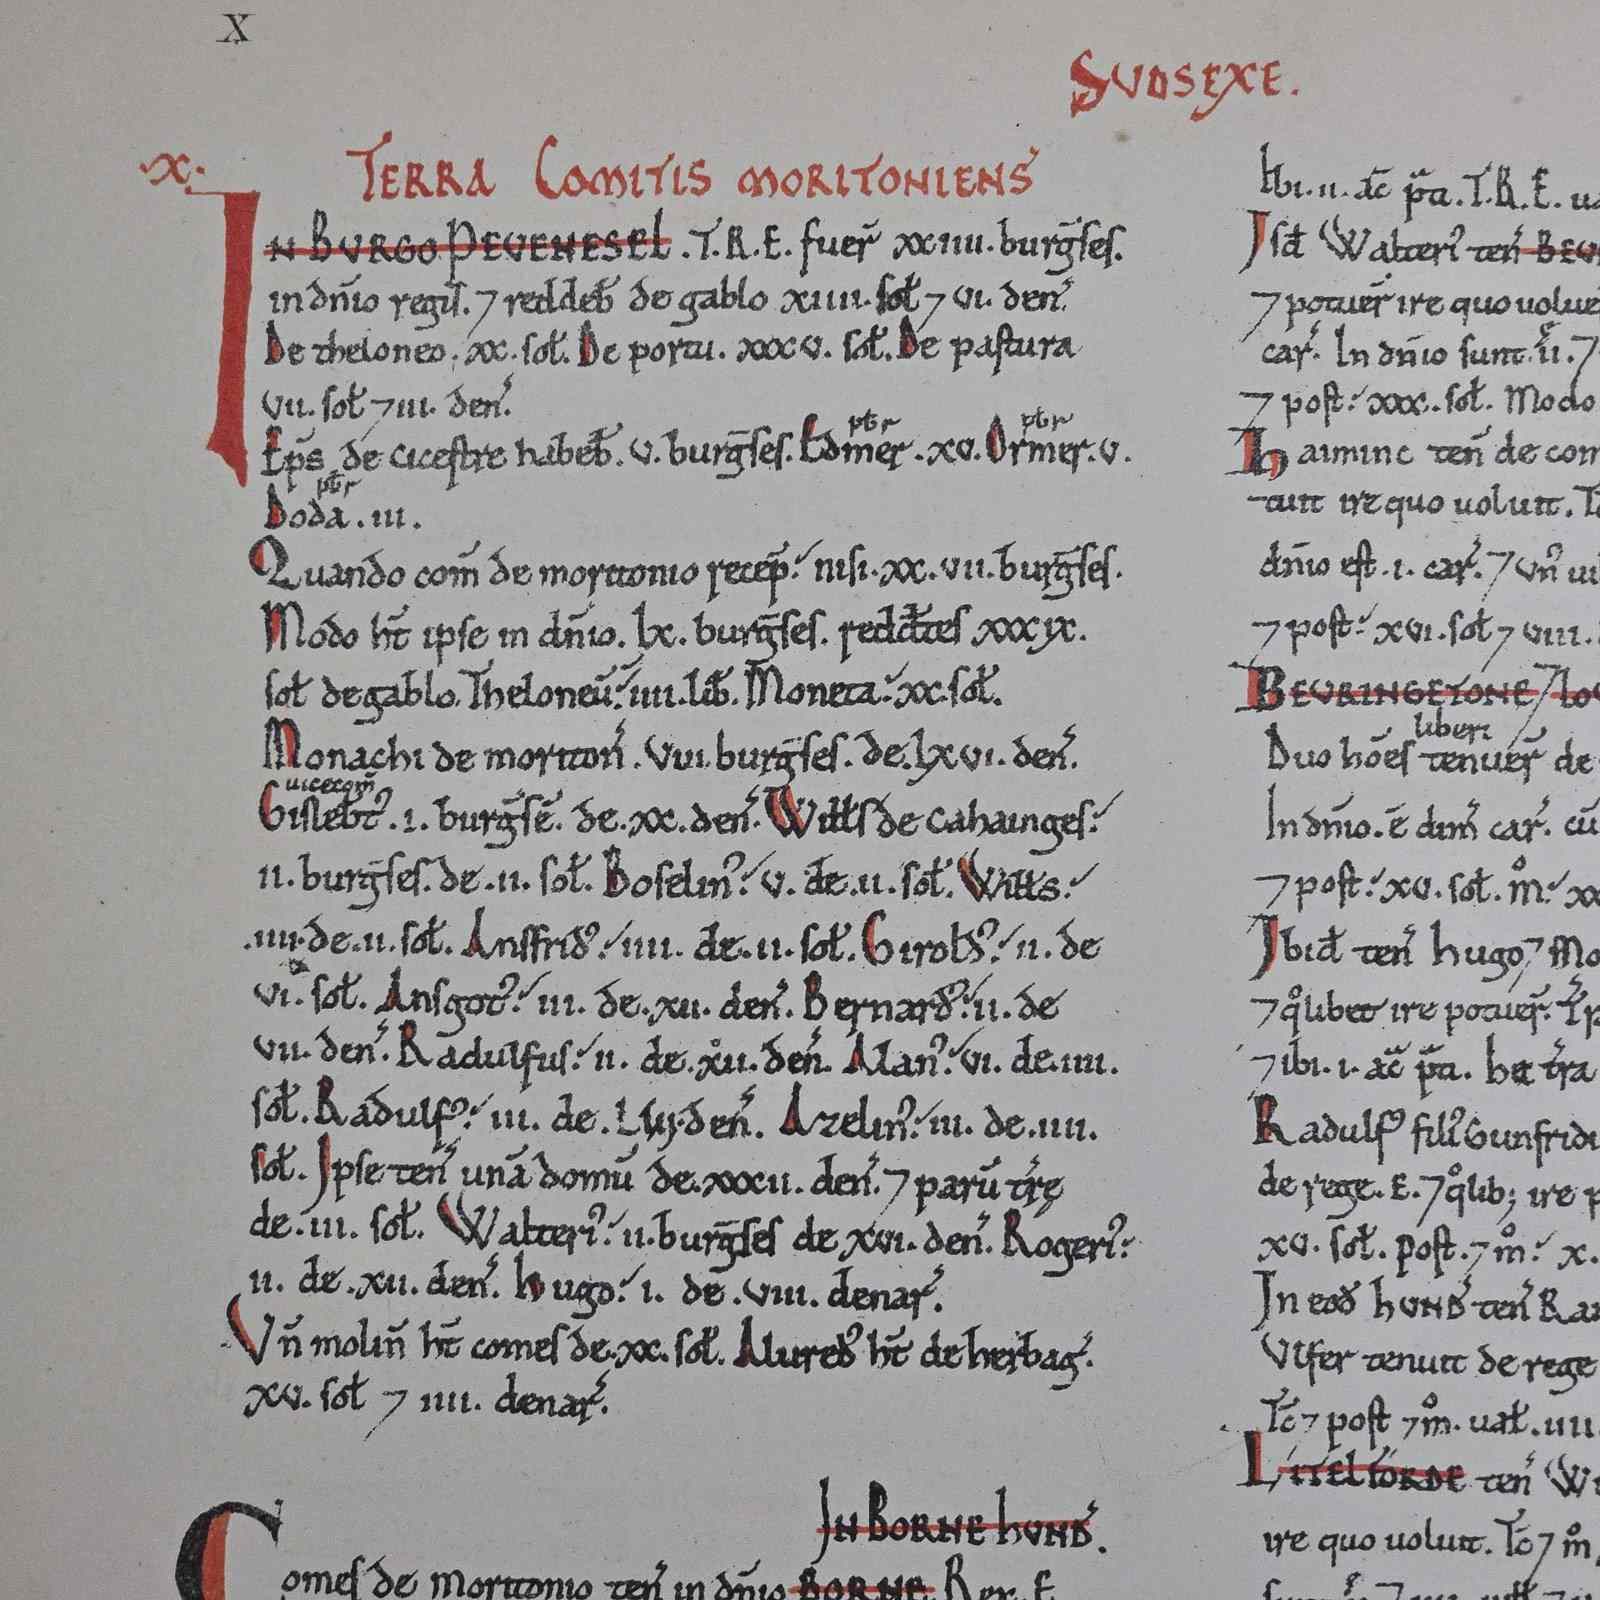 X
SUDSEXE.
.X. TERRA COMITIS MORITONIENS̕
IN BURGO PEVENESEL. T.R.E. fuer̃ xxiiii. burg̃ses.
in dñio regis. ⁊ reddeb̃ de gablo xiiii. sol̃ ⁊ vi. den̕.
De theloneo. xx. sol̃. De portu. xxxv. sol̃. De pastura
vii. sol̃ ⁊ iii. den̕.
Ep̃s de cicestre habeb̃. v. burg̃ses. Edmer pb̃r. xv. Ormer pb̃r. v.
Doda pb̃r. iii.
Quando com̃ de moritonio recep̃: nisi. xx.vii. burg̃ses.
Modo ht̃ ipse in dñio. lx. burg̃ses. redd̃tes xxxix.
sol̃ de gablo. Theloneũ: iiii. lib̃. Moneta: xx. sol̃.
Monachi de moriton̕. viii. burg̃ses. de. lxvi. den̕.
Gislebt̃ꝰ uicecom̃. i. burg̃sẽ. de. xx. den̕. Will̃s de cahainges:
ii. burg̃ses. de. ii. sol̃. Boselinꝰ: v. de. ii. sol̃. Will̃s:
.iiii. de. ii. sol̃. Ansfridꝰ: iiii. de. ii. sol̃. Giroldꝰ: ii. de
vi. sol̃. Ansgotꝰ: iii. de. xii. den̕. Bernardꝰ: ii. de
vii. den̕. Radulfus: ii. de. xii. den̕. Alanꝰ: vi. de. iiii.
sol̃. Radulfꝰ: iii. de. Liij. den̕. Azelinꝰ: iii. de. iiii.
sol̃. Ipse ten̕ unã domũ de. xxxii. den̕. ⁊ parũ tr̃ę
de. iii. sol̃. Walterꝰ: ii. burg̃ses de xvi. den̕. Rogerꝰ:
ii. de. xii. den̕. hugo: i. de. viii. denar̕.
Vñ molin̄ ht̃ comes de. xx. sol̃. Aluredꝰ ht̃ de herbag̕.
xv. sol̃ ⁊ iiii. denar̕.
IN BORNE HUND̕.
Comes de moritonio ten̕ in dñio BORNE. Rex. E.
Ibi. ii. ac̃ p̃ti. T.R.E.
Isd̃ Walterꝰ ten̕
⁊ potuer̃ ire quo
car̕. In dñio sunt. ii. ⁊
⁊ post: xxx. sol̃. Modo
haiminc ten̕ de
tuit ire quo uoluit.
dñio est. i. car̕. ⁊ un̕
⁊ post: xvi. sol̃ ⁊ viii.
BEVRINGETONE
Duo hões liberi tenuer̃ de
In dñio. ẽ dim̃ car̕. cũ
⁊ post: xv. sol̃. m̊:
Ibid̃ ten̕ hugo ⁊
⁊ q̊libet ire potuer̃.
⁊ ibi. i. ac̃ p̃ti. hęc tr̃a
Radulfꝰ filiꝰ Gunfridi
de rege. E. ⁊ q̊lib; ire
xv. sol̃. post. ⁊ m̊: x.
In eod̃ HUND̕ ten̕
Vlfer tenuit de rege
Tc̃ ⁊ post ⁊ m̊. ual̃. iiii
LITELFORDE ten̕
ire quo uoluit. Tc̃ ⁊ m̊